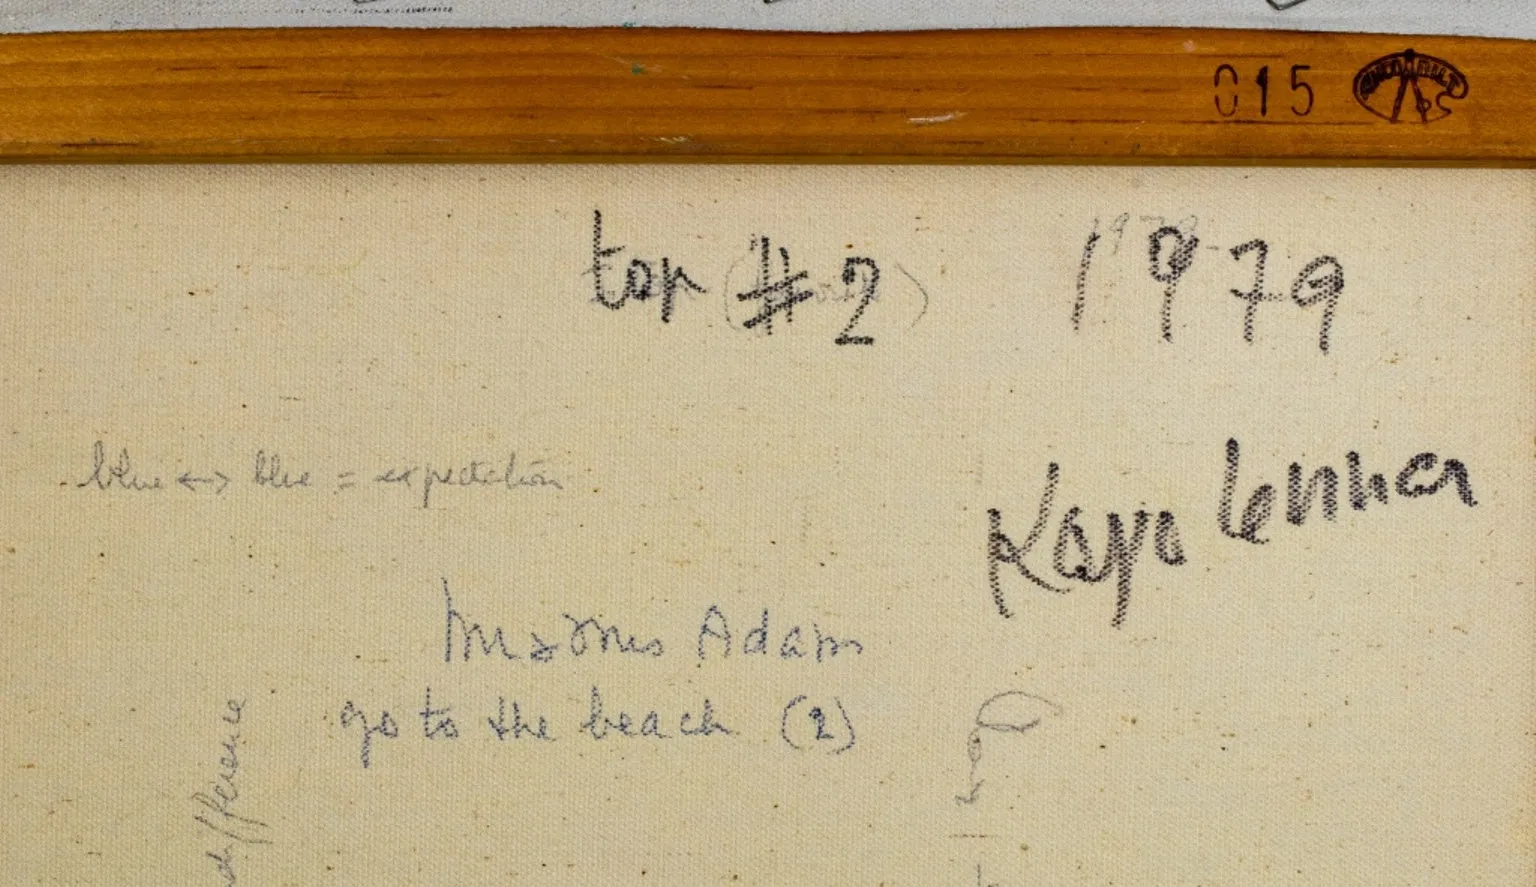 015
top #2 1979
1979
blue ↔ blue = expectation
Kayo Lennar
Mr & Mrs Adams
go to the beach (2)
difference